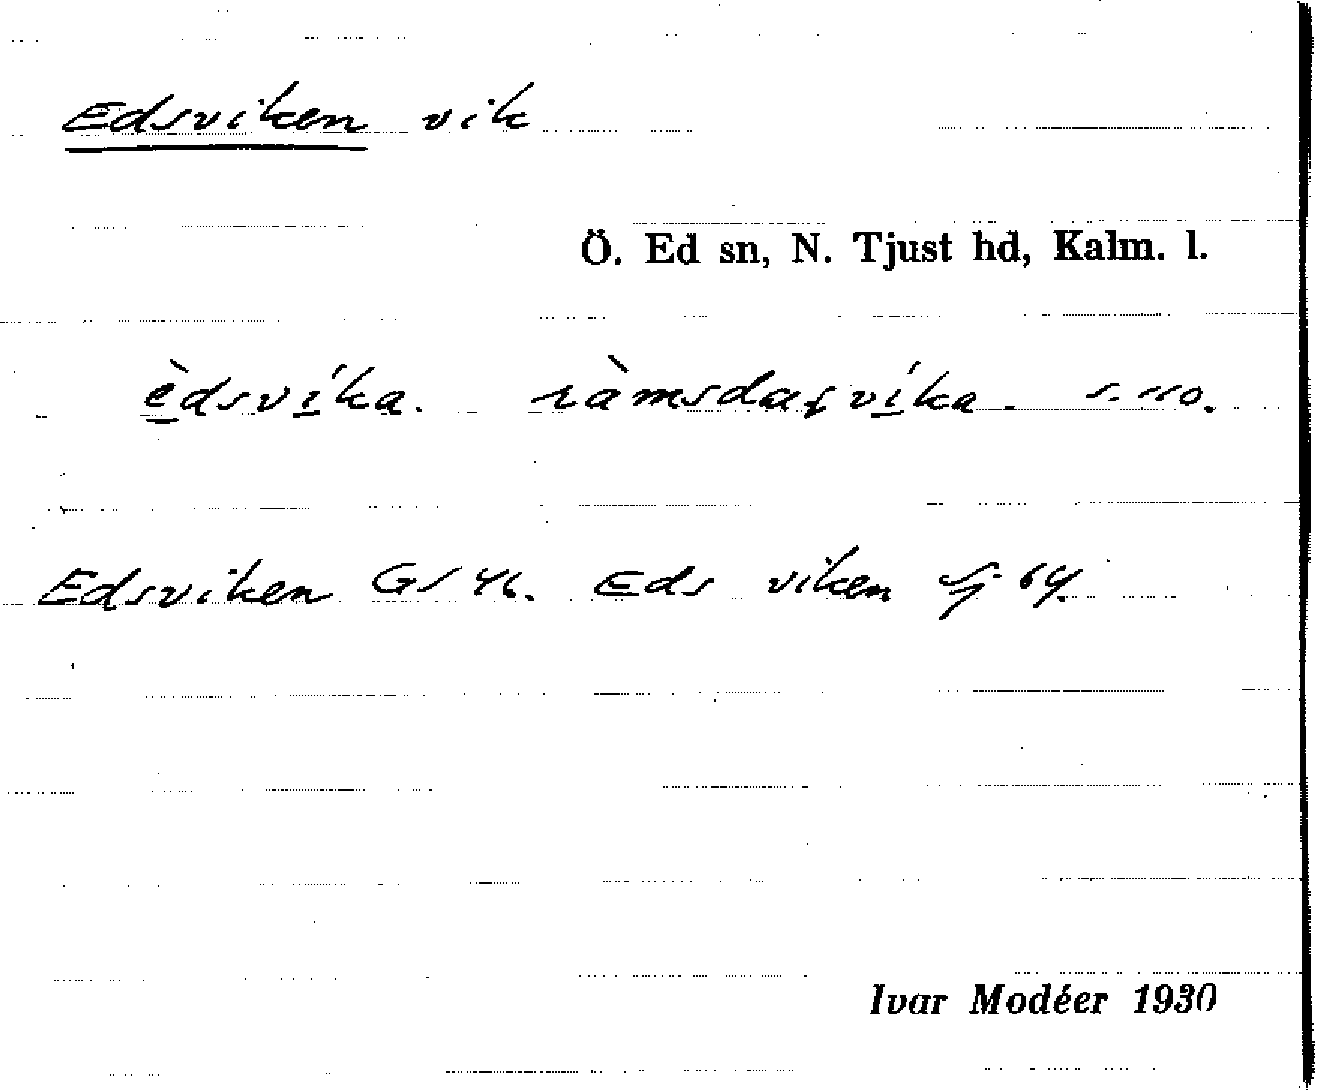 Edsviken vik
Ö. Ed sn, N. Tjust hd, Kalm. l.
èdsvíka. ràmsdaʂvíka. s. 110.
Edsviken GS 46. Eds viken Sj 64.
Ivar Modéer 1930